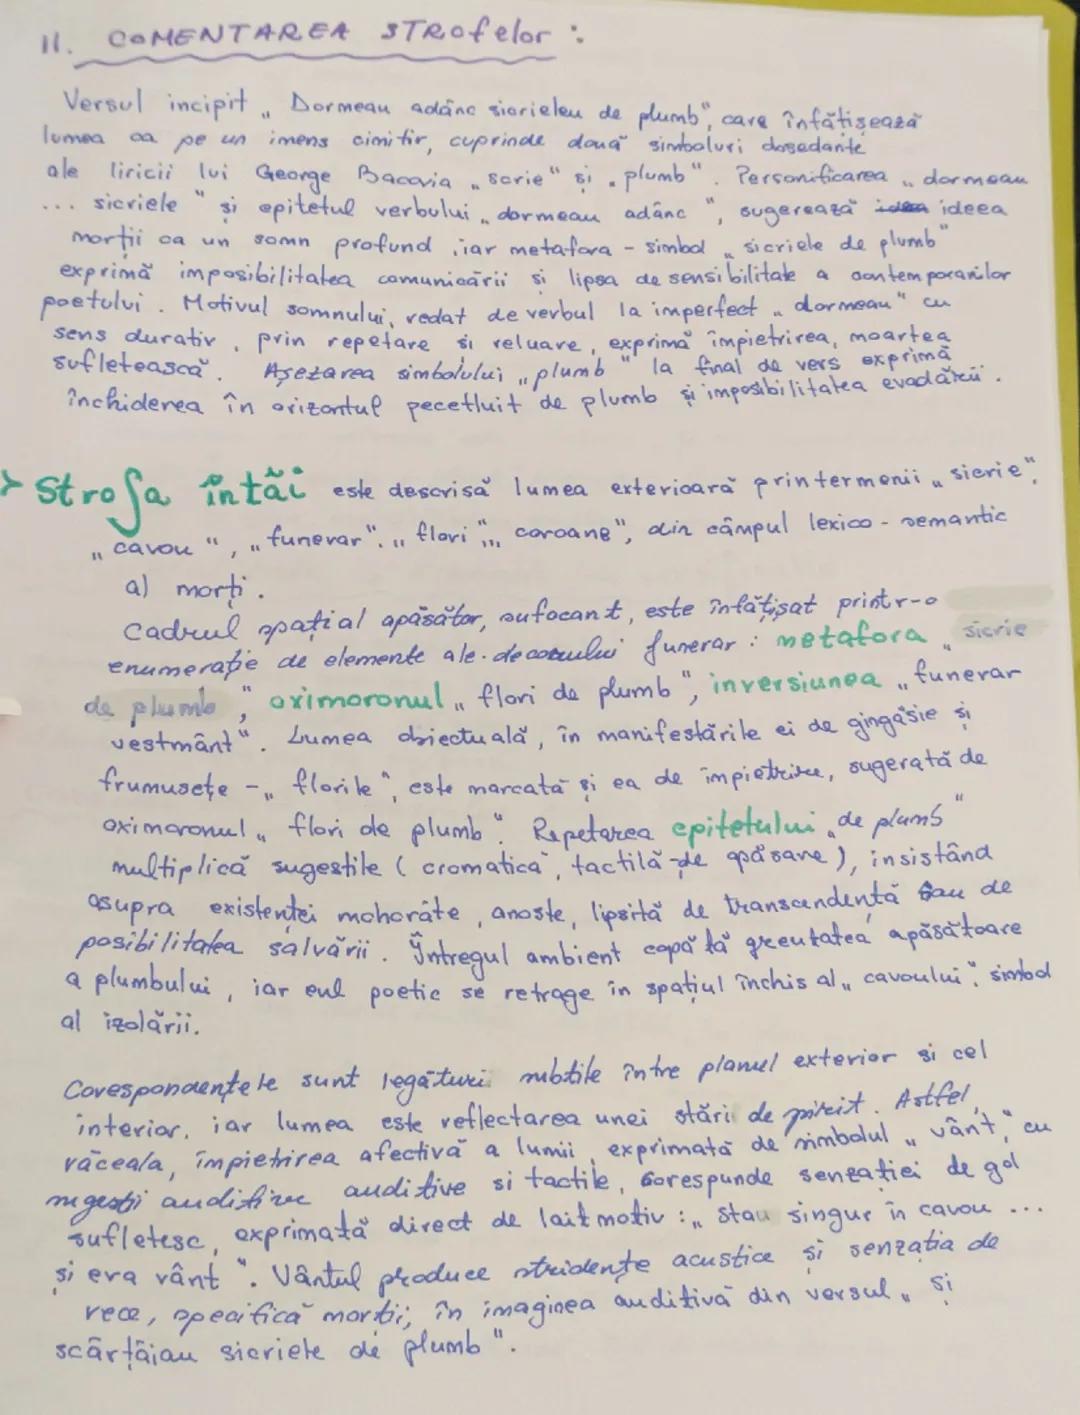 II. COMENTAREA STROfelor :
Versul incipit „ Dormeau adânc sicrieleu de plumb", care înfătișează
lumea ca pe un imens cimitir, cuprinde două simboluri dosedante
ale liricii lui George Bacovia „ scrie" și „ plumb". Personificarea „ dormeau
... sicriele " și epitetul verbului „ dormeau adânc ", sugerează ideea
morții ca un somn profund , iar metafora - simbol „ sicriele de plumb"
exprimă imposibilitatea comunicării si lipsa de sensibilitate a contemporanilor
poetului . Motivul somnului, redat de verbul la imperfect „ dormeau" cu
sens durativ , prin repetare si reluare , exprimă împietrirea, moartea
sufletească . Așezarea simbolului „ plumb " la final de vers exprimă
închiderea în orizontul pecetluit de plumb și imposibilitatea evadării .
> Strofa întăi este descrisă lumea exterioară prin termenii „ sicrie",
„ cavou ", „ funerar". „ flori", „ coroane", din câmpul lexico - semantic
al morți .
Cadrul spațial apăsător, sufocant, este înfățișat printr-o
enumerație de elemente ale decorului funerar : metafora „ sicrie
de plumb ", oximoronul „ flori de plumb ", inversiunea „ funerar
vestmânt". Lumea obiectuală, în manifestările ei de gingăsie și
frumusețe - „ florile ", este marcată și ea de împietrire, sugerată de
oximoronul „ flori de plumb". Repetarea epitetului „ de plumb "
multiplică sugestile ( cromatică, tactilă - de apăsare ), insistând
asupra existenței mohorâte , anoste, lipsită de transcendentă sau de
posibilitatea salvării . Întregul ambient capătă greutatea apăsătoare
a plumbului , iar eul poetic se retrage în spațiul închis al „ cavoului", simbol
al izolării.
Corespondențele sunt legături subtile între planul exterior și cel
interior, iar lumea este reflectarea unei stări de spirit . Astfel,
răceala, împietrirea afectivă a lumii , exprimată de simbolul „ vânt", cu
sugestii auditive auditive si tactile, corespunde senzației de gol
sufletesc, exprimată direct de laitmotiv : „ Stau singur în cavou ...
și era vânt ". Vântul produce stridențe acustice și senzația de
rece, specifică morții; în imaginea auditivă din versul „ Si
scârțâiau sicriele de plumb ".